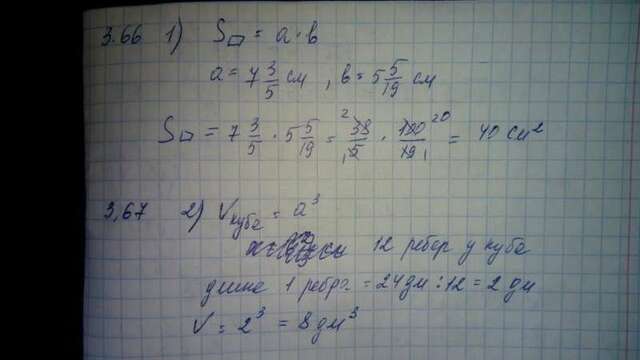 3.66 1) S▱ = a · b
a = 7 3/5 см , b = 5 5/19 см
S▱ = 7 3/5 · 5 5/19 = 38/5 · 100/19 = 40 см²
3,67 2) Vкуба = a³
12 ребер у куба
длина 1 ребра = 24 дм : 12 = 2 дм
V = 2³ = 8 дм³